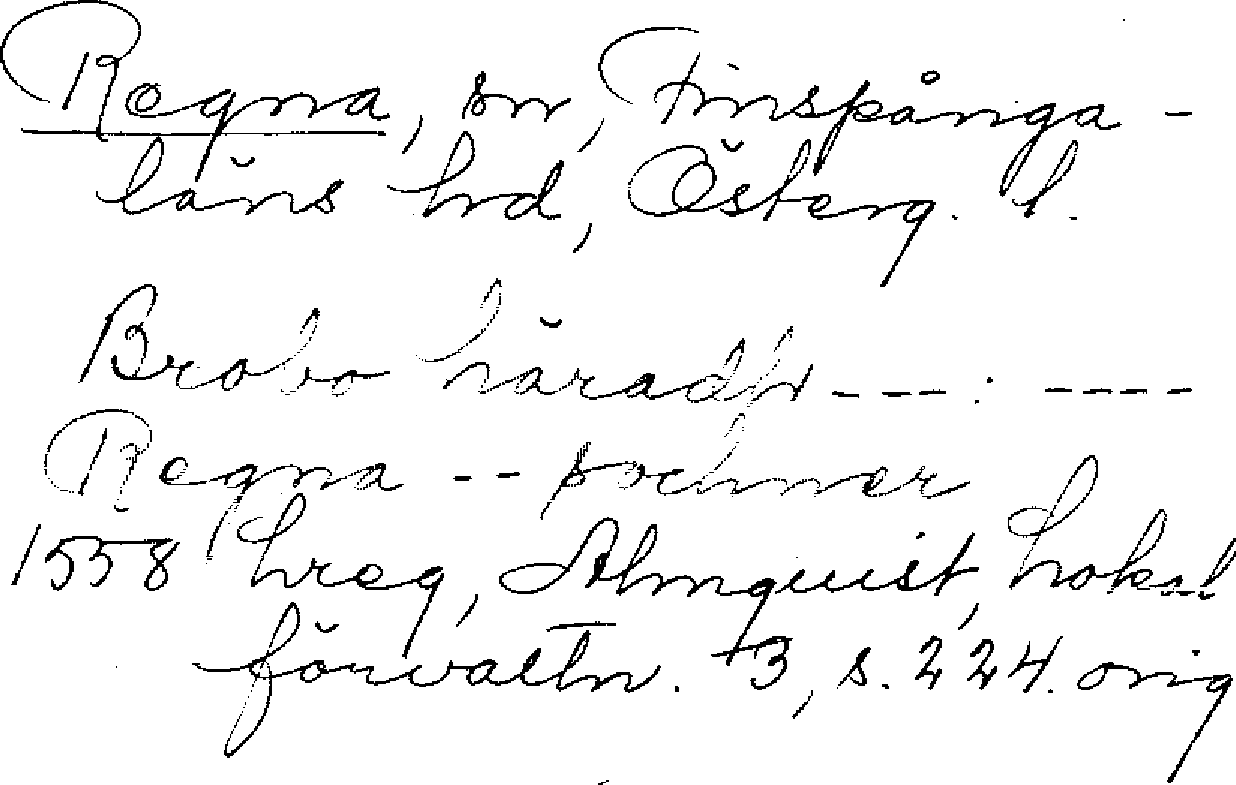 Regna, sn, Finspånga-
läns hrd, Österg. l.
Brobo häradh ---: ----
Regna -- sochner
1558 hreg, Almquist, Lokal
förvaltn. 3, s. 224. orig